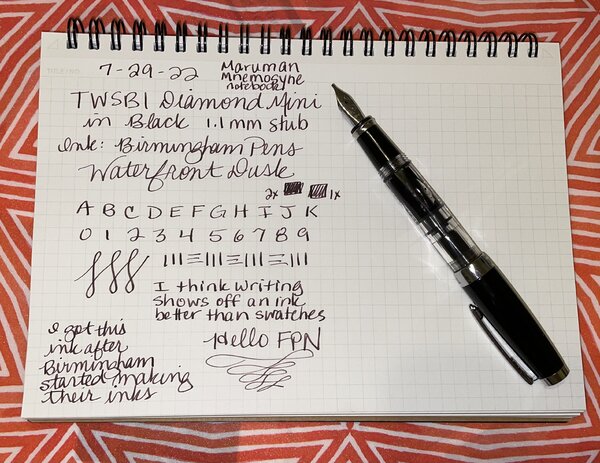 7-29-22
Maruman
Mnemosyne
notebook
TWSBI Diamond Mini
in Black 1.1mm stub
Ink: Birmingham Pens
Waterfront Dusk
2x 1x
A B C D E F G H I J K
0 1 2 3 4 5 6 7 8 9
I think writing
shows off an ink
better than swatches
Hello FPN
I got this
ink after
Birmingham
started making
their inks